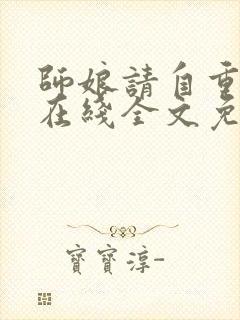 師娘請自重
在綫全文免
寶寶淳-